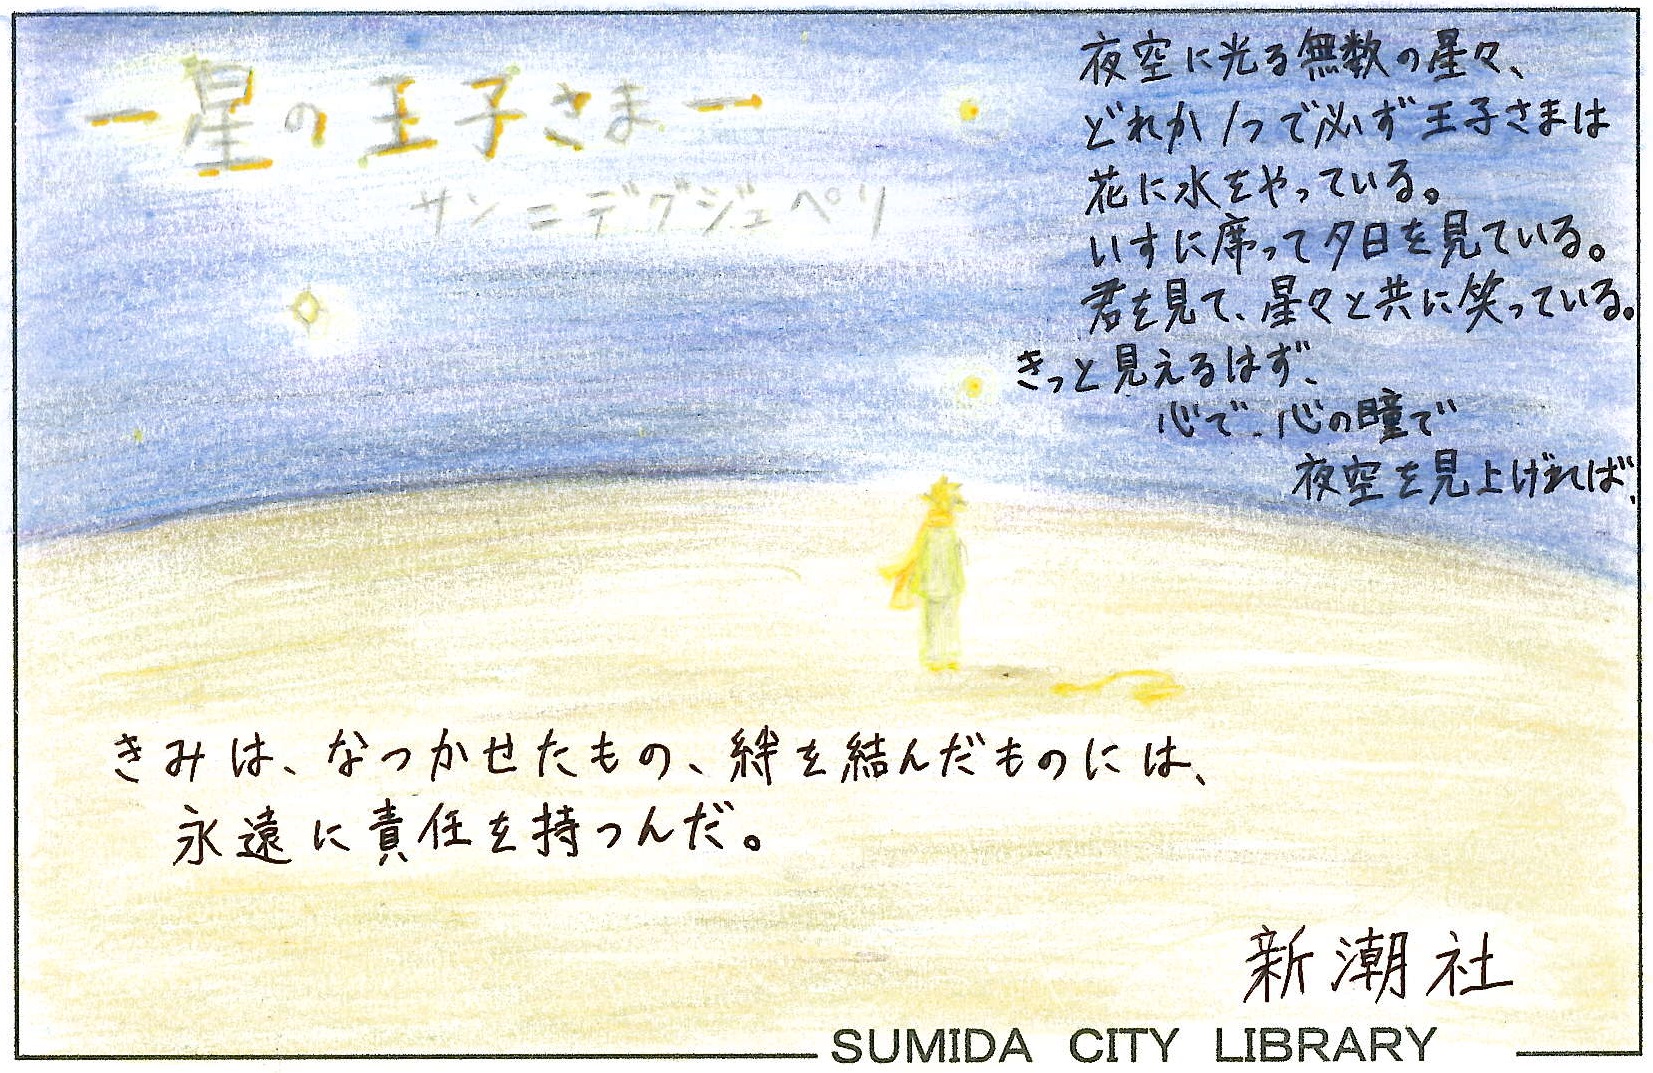 ー星の王子さまー
サン=デグジュペリ
夜空に光る無数の星々、
どれか1つで必ず王子さまは
花に水をやっている。
いすに席って夕日を見ている。
君を見て、星々と共に笑っている。
きっと見えるはず、
心で、心の瞳で
夜空を見上げれば、
きみは、なつかせたもの、絆を結んだものには、
永遠に責任を持つんだ。
新潮社
SUMIDA CITY LIBRARY